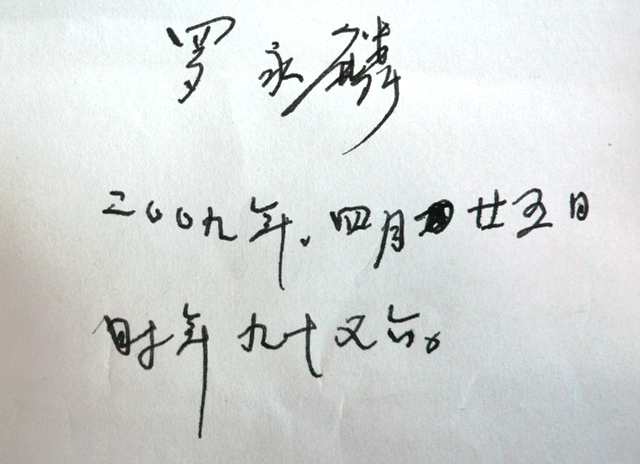 罗永麟
二〇〇九年。四月廿五日
时年九十又六。